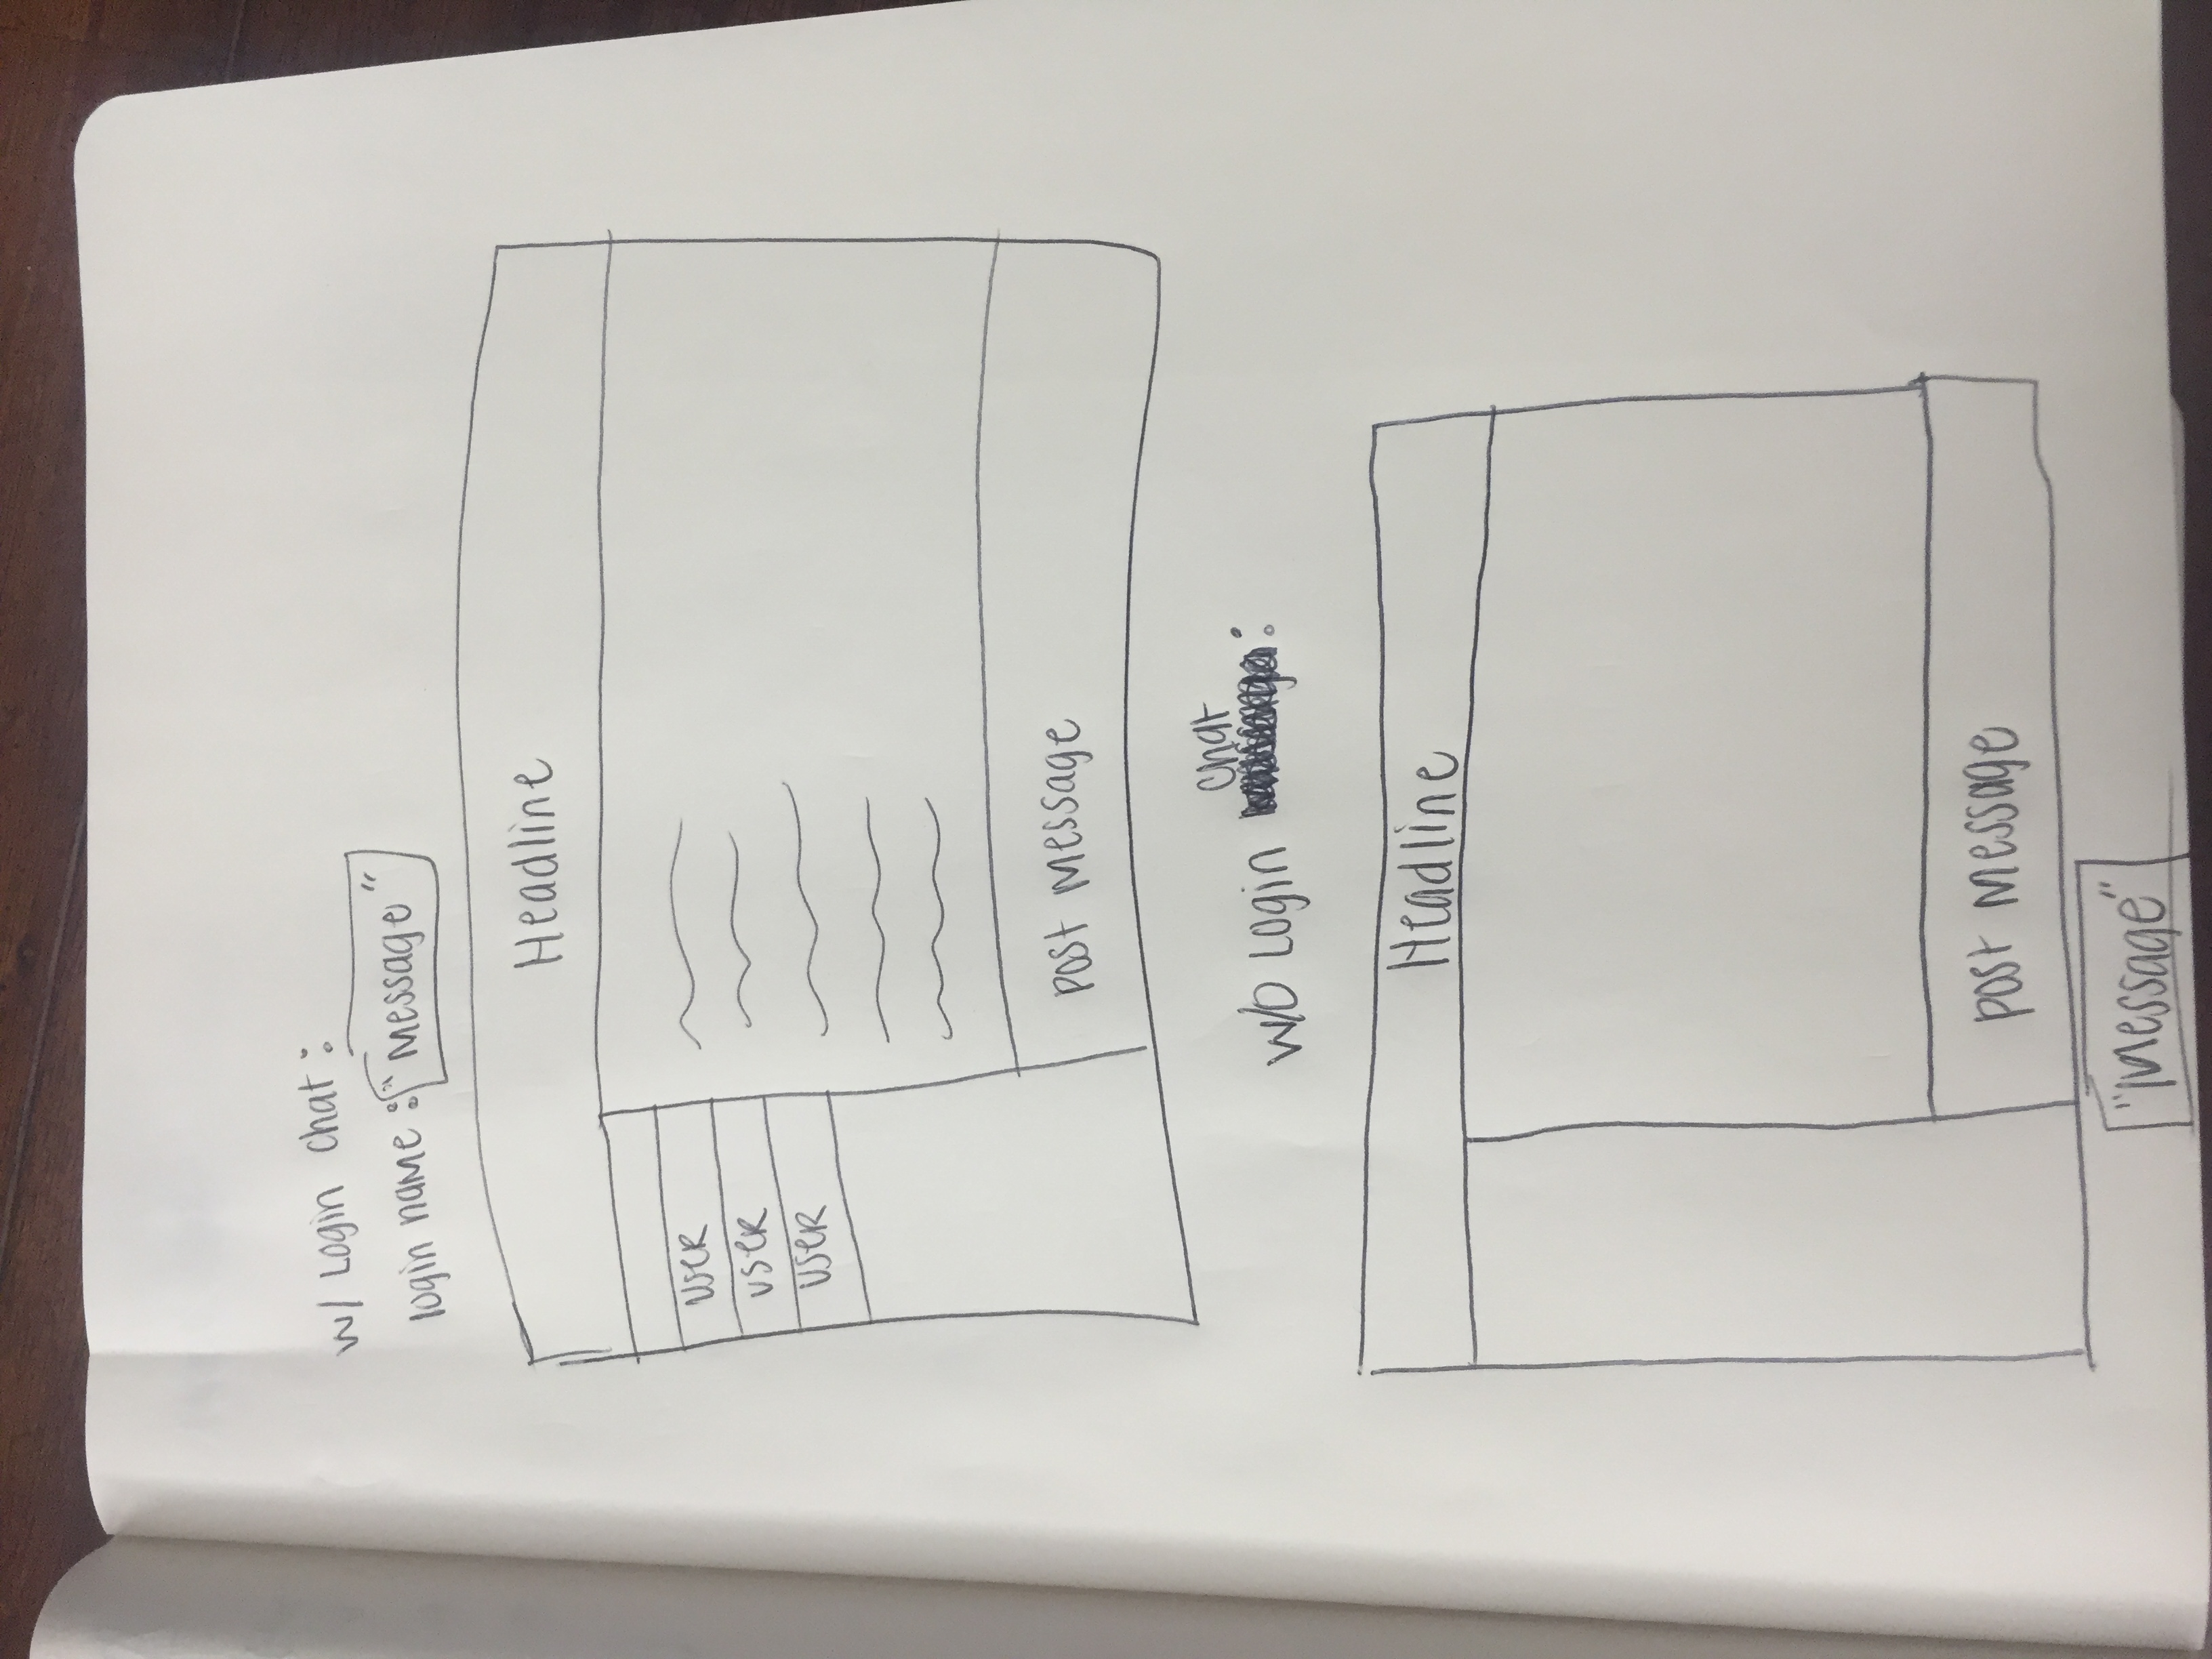 w/ Login chat :
login name : "Message"
Headline
User
User
User
post message
chat
w/o Login :
Headline
post message
"Message"